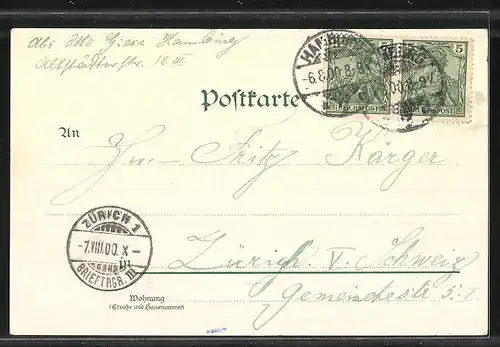 Abs: Otto Giese Hamburg
Altstädterstr. 18 III.
HAMBURG
-6.8.00.8-9V.
5
REICHSPOST
5
REICHSPOST
Postkarte
An
Herrn Fritz Kärger
ZÜRICH 1
-7.VIII.00.X-
III
BRIEFTRGR. III
Zürich V Schweiz
Gemeindestr 5.I
Wohnung
(Straße und Hausnummer)